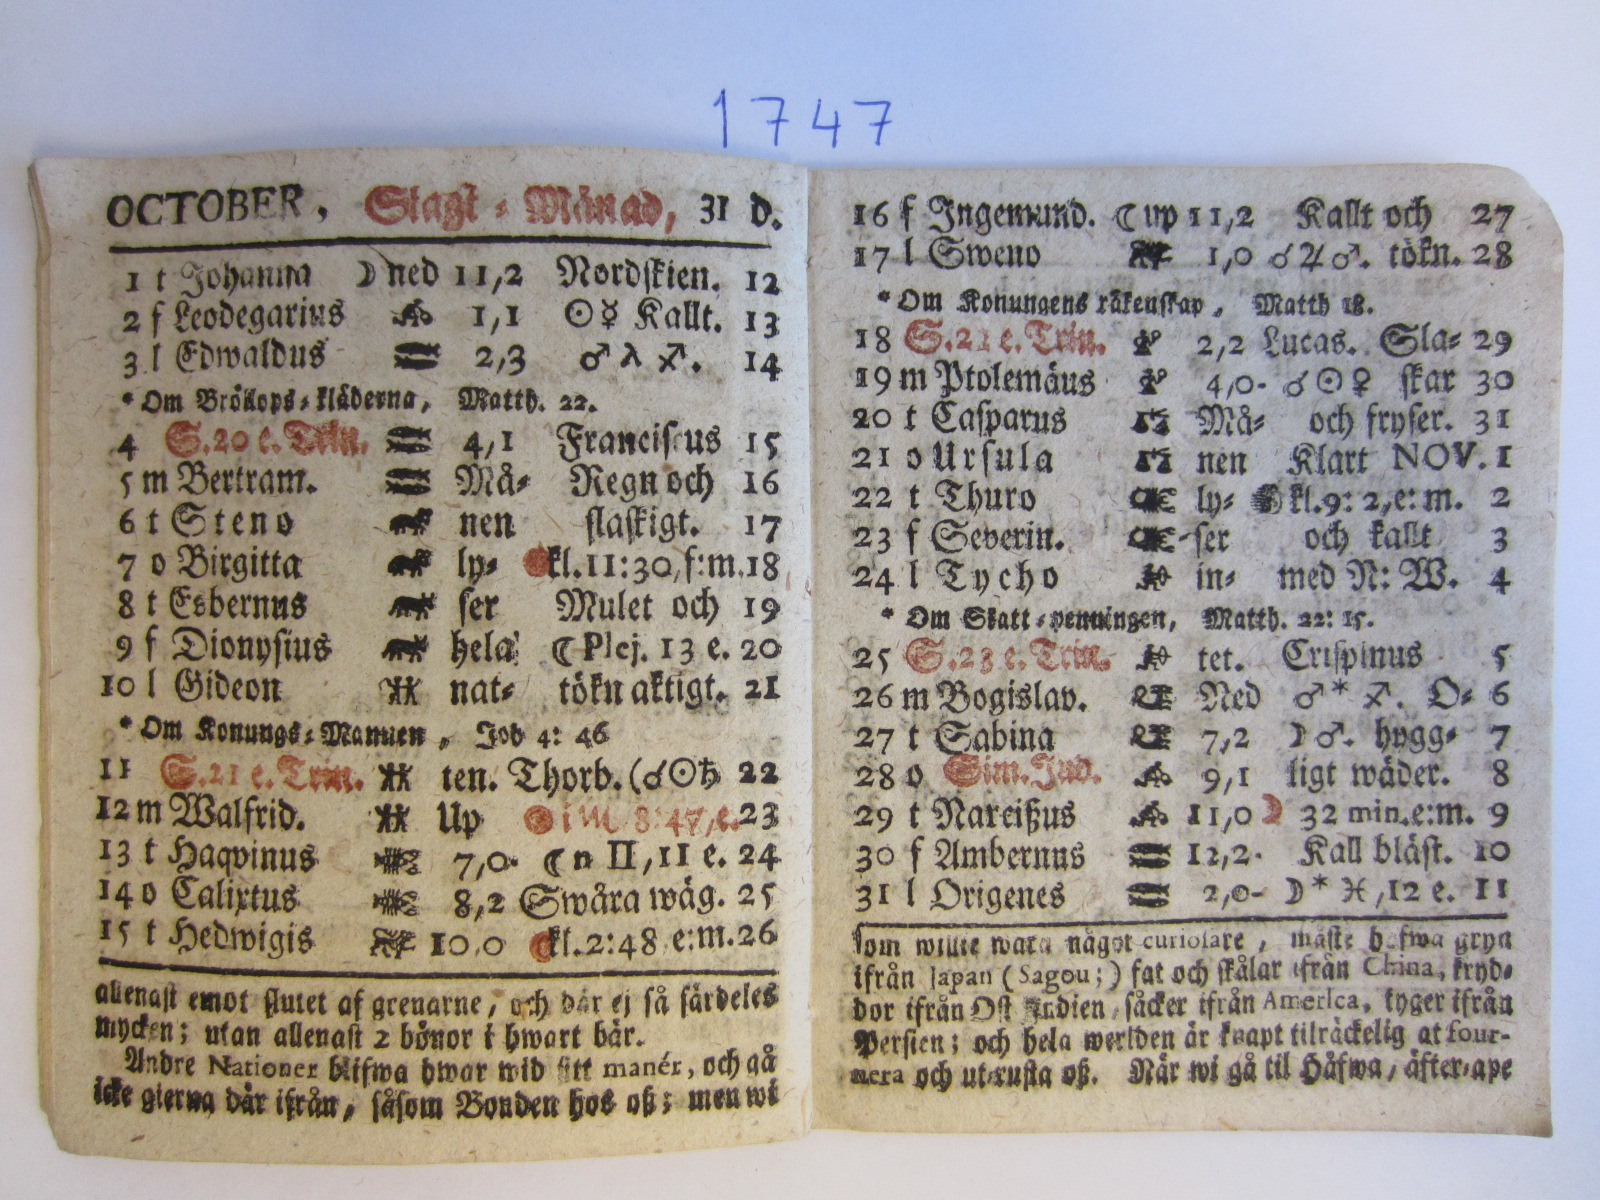 1747
OCTOBER, Slagt-Månad, 31 d.
1 t Johanna ☽ ned 11,2 Nordskien. 12
2 f Leodegarius 1,1 ☉☿ Kallt. 13
3 l Edwaldus 2,3 ♂ λ ♐. 14
* Om Bröllops-kläderna, Matth. 22.
4 S. 20 e. Trin. 4,1 Franciscus 15
5 m Bertram. Må- Regn och 16
6 t Steno nen slaskigt. 17
7 o Birgitta ly- kl. 11:30, f:m. 18
8 t Esbernus ser Mulet och 19
9 f Dionysius hela ☾ Plej. 13 e. 20
10 l Gideon nat- tökn aktigt. 21
* Om Konungs-Mannen, Joh 4: 46
11 S. 21 e. Trin. ten. Thorb. (☌☉♄ 22
12 m Walfrid. Up 8:47, e. 23
13 t Haqvinus 7,0- ☾ n II, 11 e. 24
14 o Calixtus 8,2 Swåra wäg. 25
15 t Hedwigis 10,0 kl. 2:48 e:m. 26
allenast emot slutet af grenarne, och där ej så särdeles
mycken; utan allenast 2 bönor i hwart bär.
Andre Nationer blifwa hwar wid sitt manér, och gå
icke gierna där ifrån, såsom Bonden hos oß; men wi
16 f Ingemund. ☾ up 11,2 Kallt och 27
17 l Sweno 1,0 ☌♃♂. tökn. 28
* Om Konungens räkenskap, Matth 18.
18 S. 22 e. Trin. 2,2 Lucas. Sla- 29
19 m Ptolemäus 4,0- ☌☉♀ skar 30
20 t Casparus Må- och fryser. 31
21 o Ursula nen Klart NOV. 1
22 t Thuro ly- kl. 9: 2, e: m. 2
23 f Severin. ser och kallt 3
24 l Tycho in- med N: W. 4
* Om Skatt-penningen, Matth. 22: 15.
25 S. 23 e. Trin. tet. Crispinus 5
26 m Bogislav. Ned ♂ * ♐. O- 6
27 t Sabina 7,2 ☽ ♂. hygg- 7
28 o Sim. Jud. 9,1 ligt wäder. 8
29 t Narcißus 11,0 ☽ 32 min. e:m. 9
30 f Ambernus 12,2- Kall bläst. 10
31 l Origenes 2,0- ☽ * ♓, 12 e. 11
som wille wara något curiosare, måste hafwa gryn
ifrån Japan (Sagou;) fat och skålar ifrån China, kryd-
dor ifrån Ost Indien, såcker ifrån America, tyger ifrån
Persien; och hela werlden är knapt tilräckelig at four-
nera och ut-rusta oß. När wi gå til Håfwa, äfter-ape